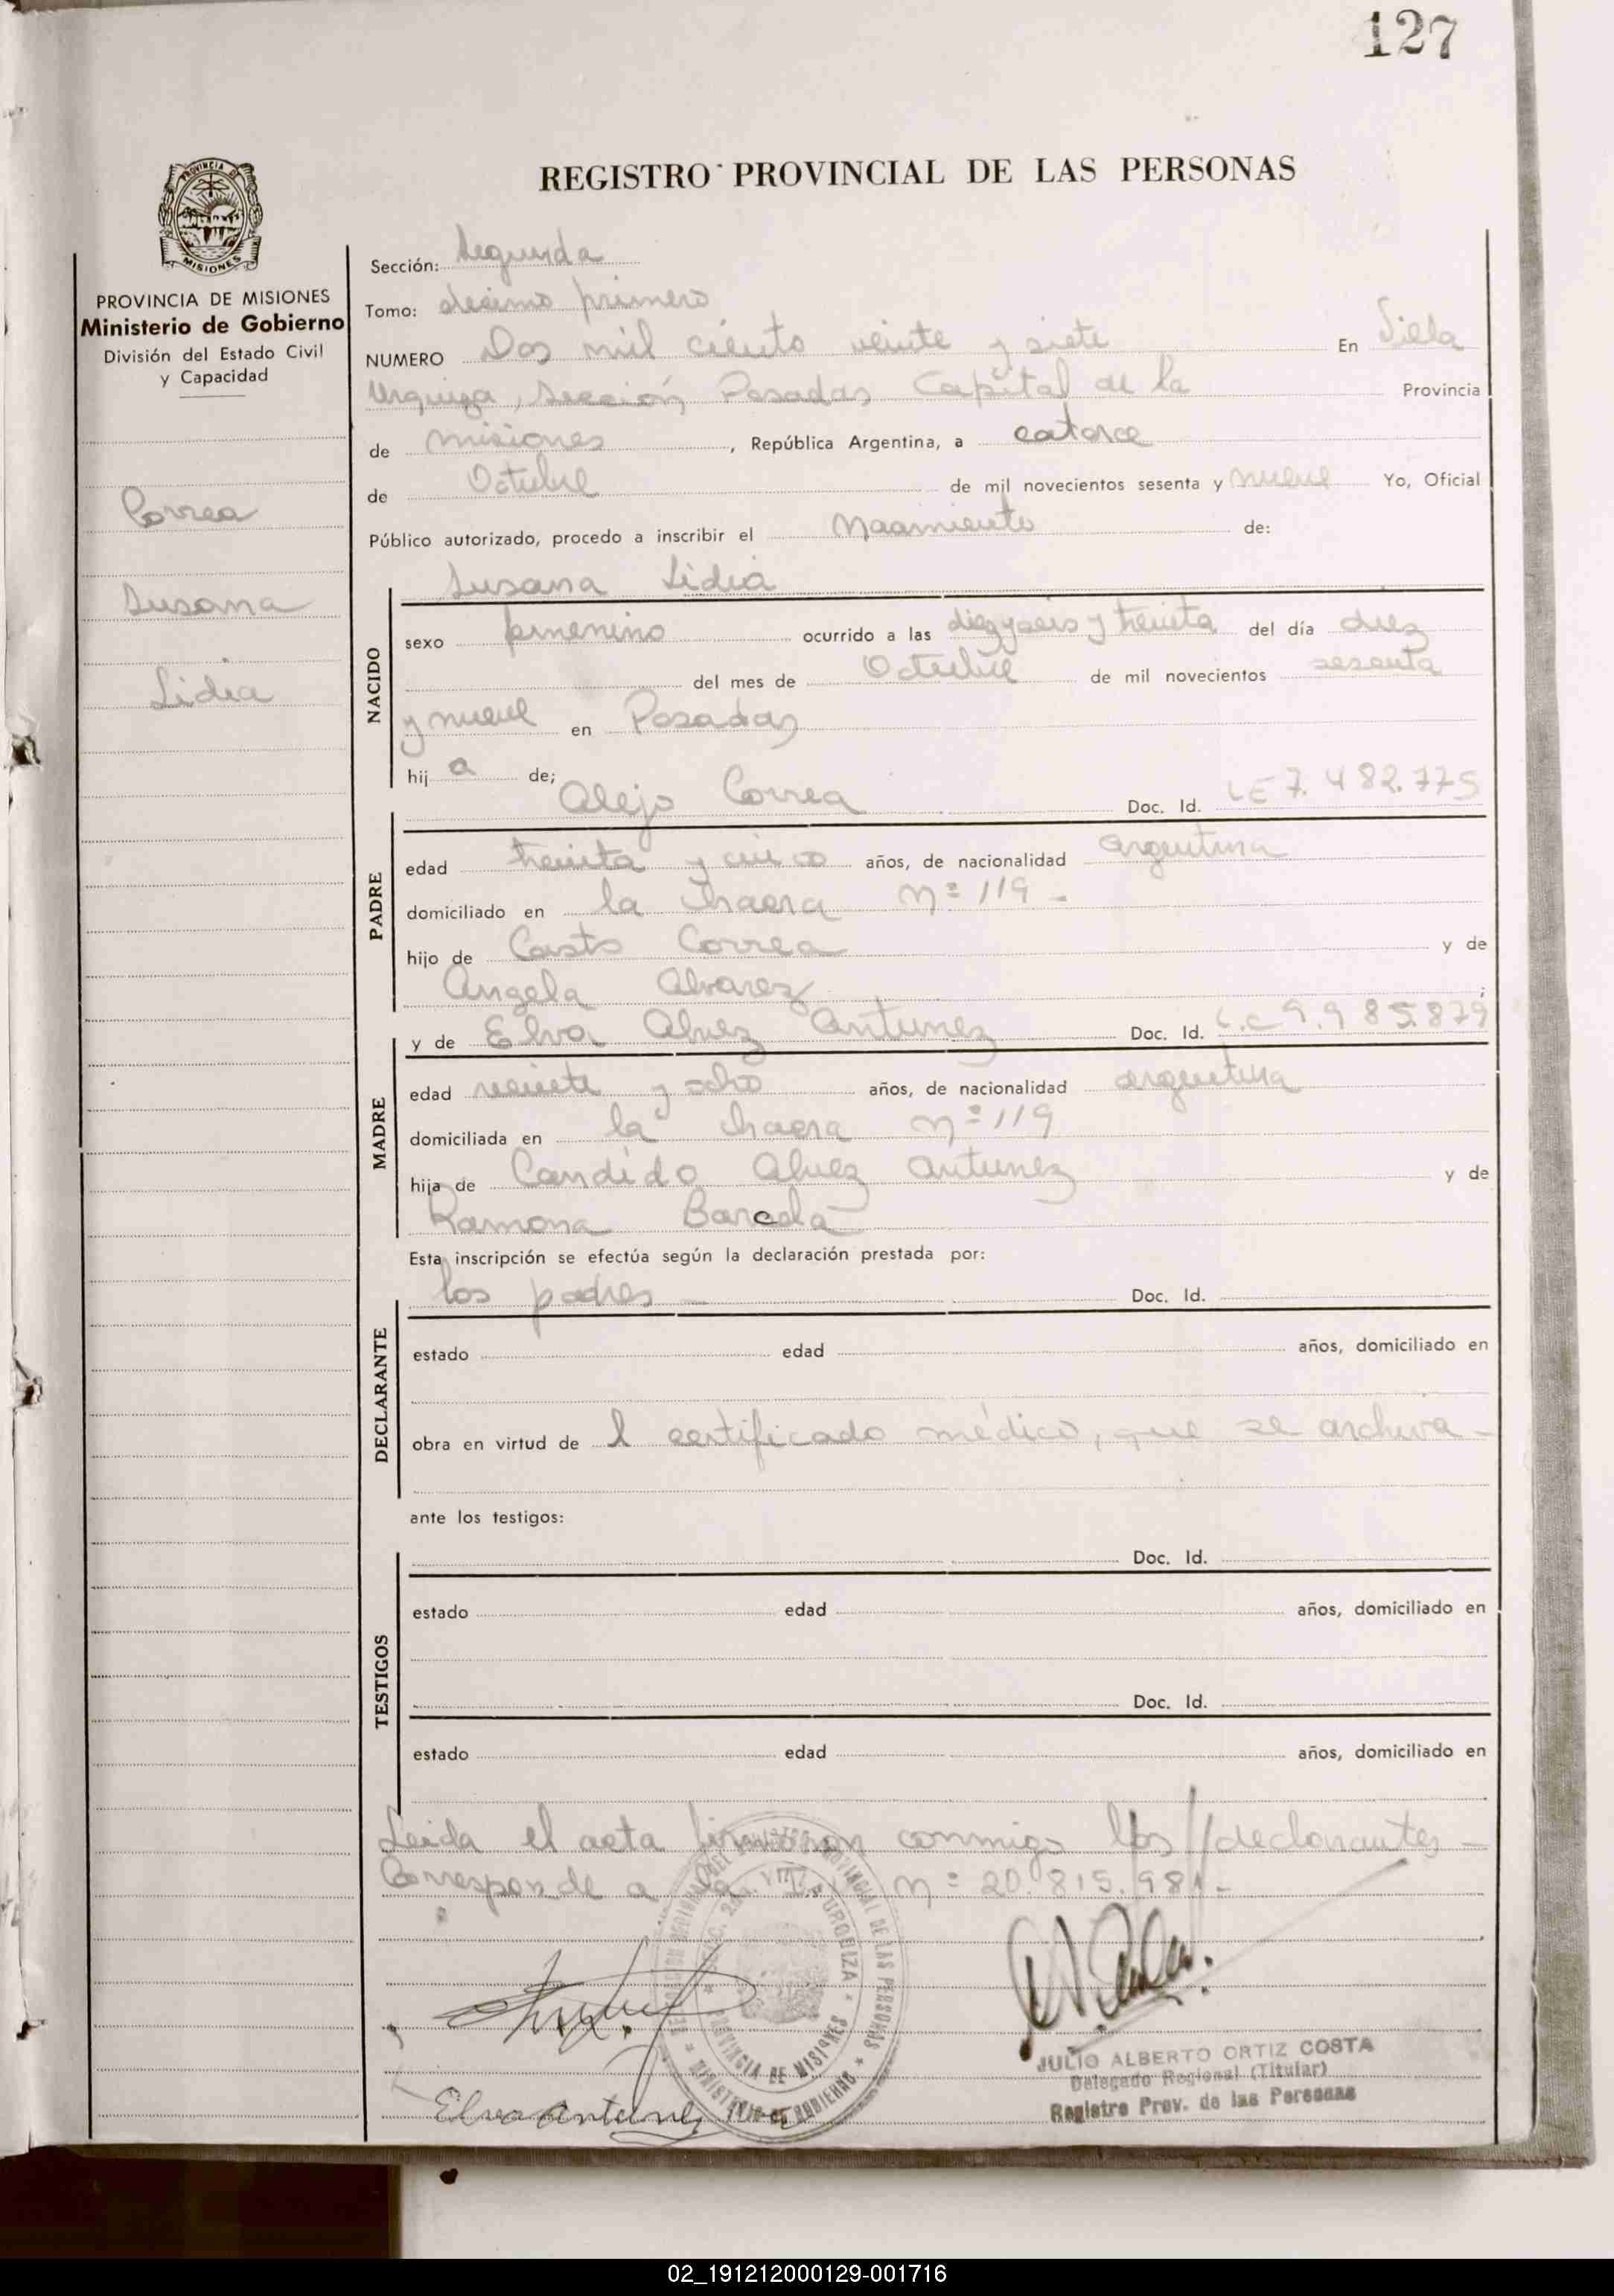 127
REGISTRO PROVINCIAL DE LAS PERSONAS
PROVINCIA DE MISIONES
MISIONES
PROVINCIA DE MISIONES
Ministerio de Gobierno
División del Estado Civil
y Capacidad
Correa
Susana
Lidia
Sección: Segunda
Tomo: decimo primero
NUMERO Dos mil ciento veinte y siete En Villa
Urquiza, Sección Posadas Capital de la Provincia
de misiones, República Argentina, a catorce
de Octubre de mil novecientos sesenta y nueve Yo, Oficial
Público autorizado, procedo a inscribir el Nacimiento de:
Susana Lidia
NACIDO
sexo femenino ocurrido a las diez y seis y treinta del día diez
del mes de Octubre de mil novecientos sesenta
y nueve en Posadas
hij a de;
Alejo Correa Doc. Id. LE 7.482.775
PADRE
edad treinta y cinco años, de nacionalidad argentina
domiciliado en la chacra nº 119 -
hijo de Casto Correa y de
Angela Alvarez ;
y de Elva Alvez Antunez Doc. Id. L.C 9.985.879
MADRE
edad veinte y ocho años, de nacionalidad argentina
domiciliada en la chacra nº 119
hija de Candido Alvez Antunez y de
Ramona Barcela
Esta inscripción se efectúa según la declaración prestada por:
los padres - Doc. Id.
DECLARANTE
estado edad años, domiciliado en
obra en virtud de l certificado médico, que se archiva -
ante los testigos:
Doc. Id.
TESTIGOS
estado edad años, domiciliado en
Doc. Id.
estado edad años, domiciliado en
Leida el acta firmaron conmigo los declarantes -
Corresponde a la nº 20.815.981 -
JULIO ALBERTO ORTIZ COSTA
Delegado Regional (Titular)
Registro Prov. de las Personas
Elva Antunez
02_191212000129-001716